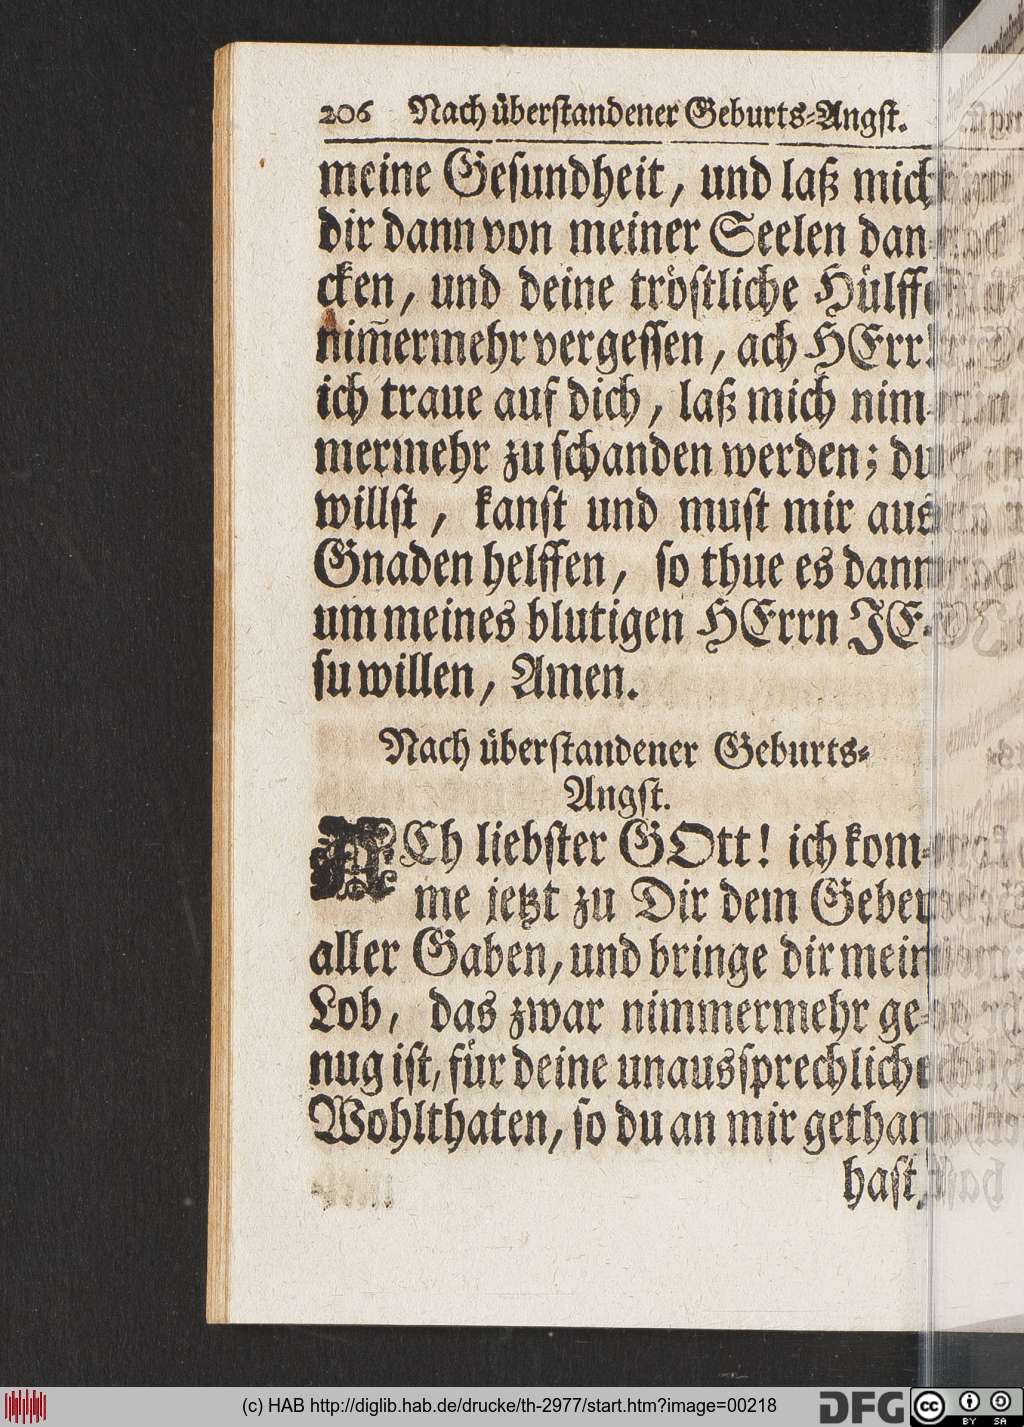 206 Nach überstandener Geburts-Angst.
meine Gesundheit, und laß mich
dir dann von meiner Seelen dan-
cken, und deine tröstliche Hülffe
nim̄ermehr vergessen, ach HErr!
ich traue auf dich, laß mich nim-
mermehr zu schanden werden; du
willst, kanst und must mir aus
Gnaden helffen, so thue es dann
um meines blutigen HErrn JE-
su willen, Amen.
Nach überstandener Geburts-
Angst.
ACh liebster GOtt! ich kom-
me jetzt zu Dir dem Geber
aller Gaben, und bringe dir mein
Lob, das zwar nimmermehr ge-
nug ist, für deine unaussprechliche
Wohlthaten, so du an mir gethan
hast,
(c) HAB http://diglib.hab.de/drucke/th-2977/start.htm?image=00218
DFG
cc BY SA